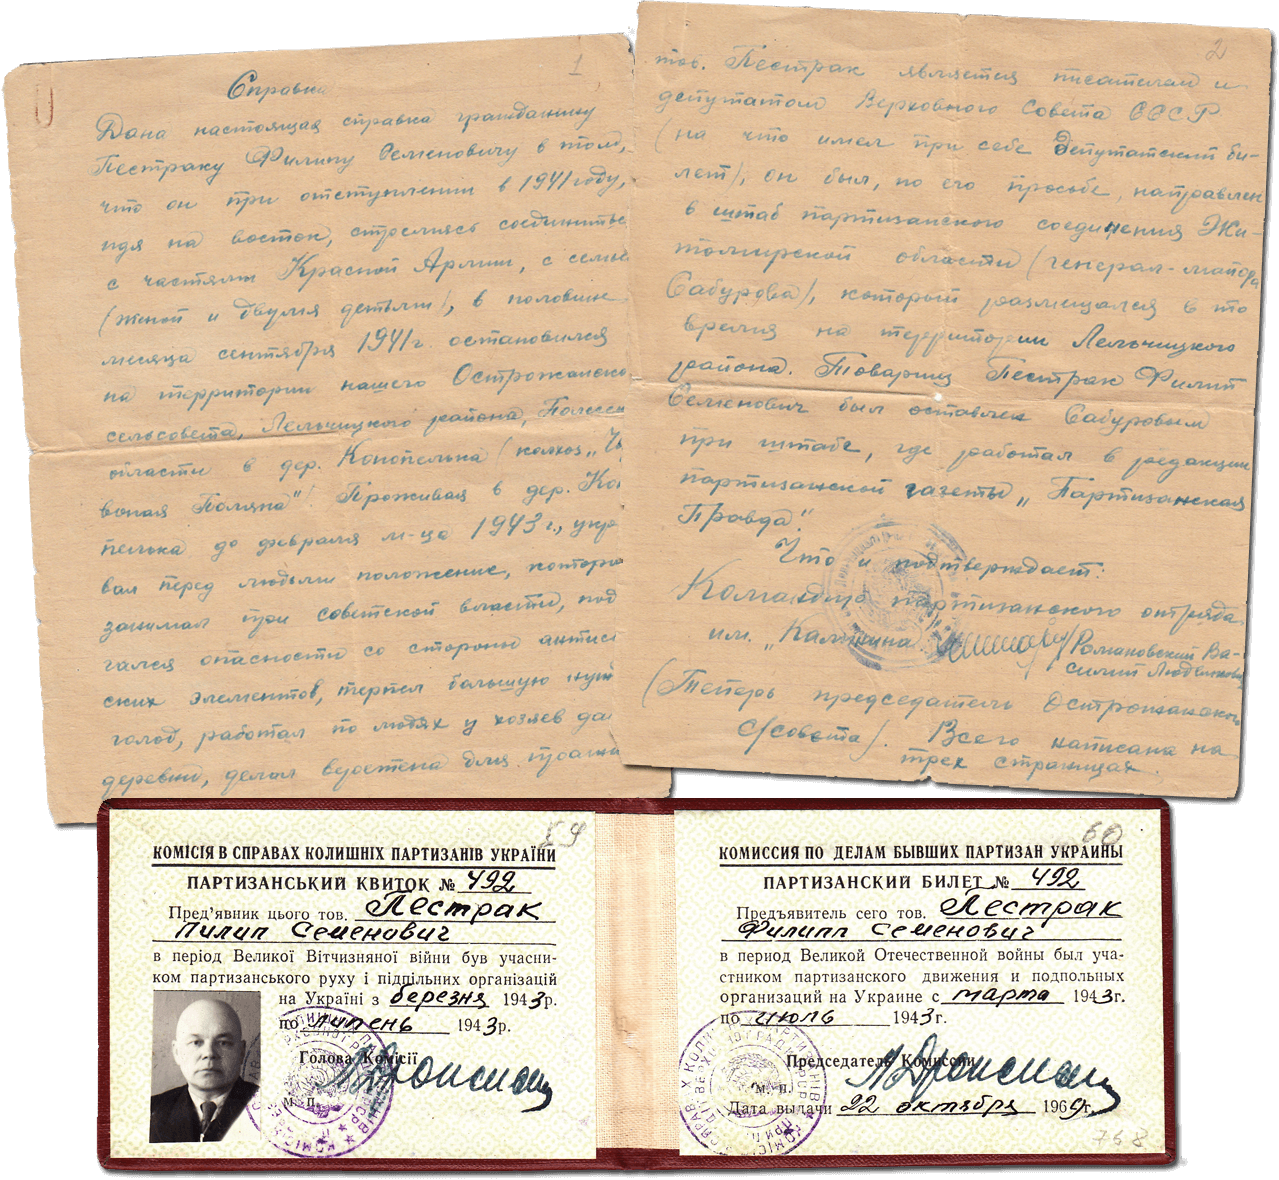 1
Справка
Дана настоящая справка гражданину
Пестраку Филипу Семеновичу в том,
что он при отступлении в 1941 году,
идя на восток, стремясь соединиться
с частями Красной Армии, с семье
(женой и двумя детьми), в половине
месяца сентября 1941 г. остановился
на территории нашего Острожанско
сельсовета, Лельчицкого района, Полесск
области в дер. Конопелька (колхоз „Че
воная Поляна" Проживая в дер. Ко
пелька до февраля м-ца 1943 г., укры
вал перед людьми положение, котор
занимал при советской власти, под
гался опасности со стороны антисо
ских элементов, терпел большую нуж
голод, работал по людях у хозяев да
деревни, делал веретена для
2
тов. Пестрак является писателем и
депутатом Верховного Совета СССР
(на что имел при себе Депутатский би-
лет), он был, по его просьбе, направлен
в штаб партизанского соединения Жи-
томирской области (генерал-майора
Сабурова), который размещался в то
время на территории Лельчицкого
района. Товарищ Пестрак Филип
Семенович был оставлен Сабуровым
при штабе, где работал в редакции
партизанской газеты „Партизанская
Правда".
Что и подтверждает:
Командир партизанского отряда
им. „Калинина" Романовский Ва-
силий Людвикович
(Теперь председатель Острожанского
с/совета). Всего написана на
трех страницах.
59
КОМІСІЯ В СПРАВАХ КОЛИШНІХ ПАРТИЗАНІВ УКРАЇНИ
ПАРТИЗАНСЬКИЙ КВИТОК № 492
Пред'явник цього тов. Пестрак
Пилип Семенович
в період Великої Вітчизняної війни був учасни-
ком партизанського руху і підпільних організацій
на Україні з березня 1943р.
по липень 1943р.
Голова Комісії
м. п.
60
КОМИССИЯ ПО ДЕЛАМ БЫВШИХ ПАРТИЗАН УКРАИНЫ
ПАРТИЗАНСКИЙ БИЛЕТ № 492
Предъявитель сего тов. Пестрак
Филипп Семенович
в период Великой Отечественной войны был уча-
стником партизанского движения и подпольных
организаций на Украине с марта 1943г.
по июль 1943г.
Председатель Комиссии
м. п.
Дата выдачи 22 октября 1969г.
768